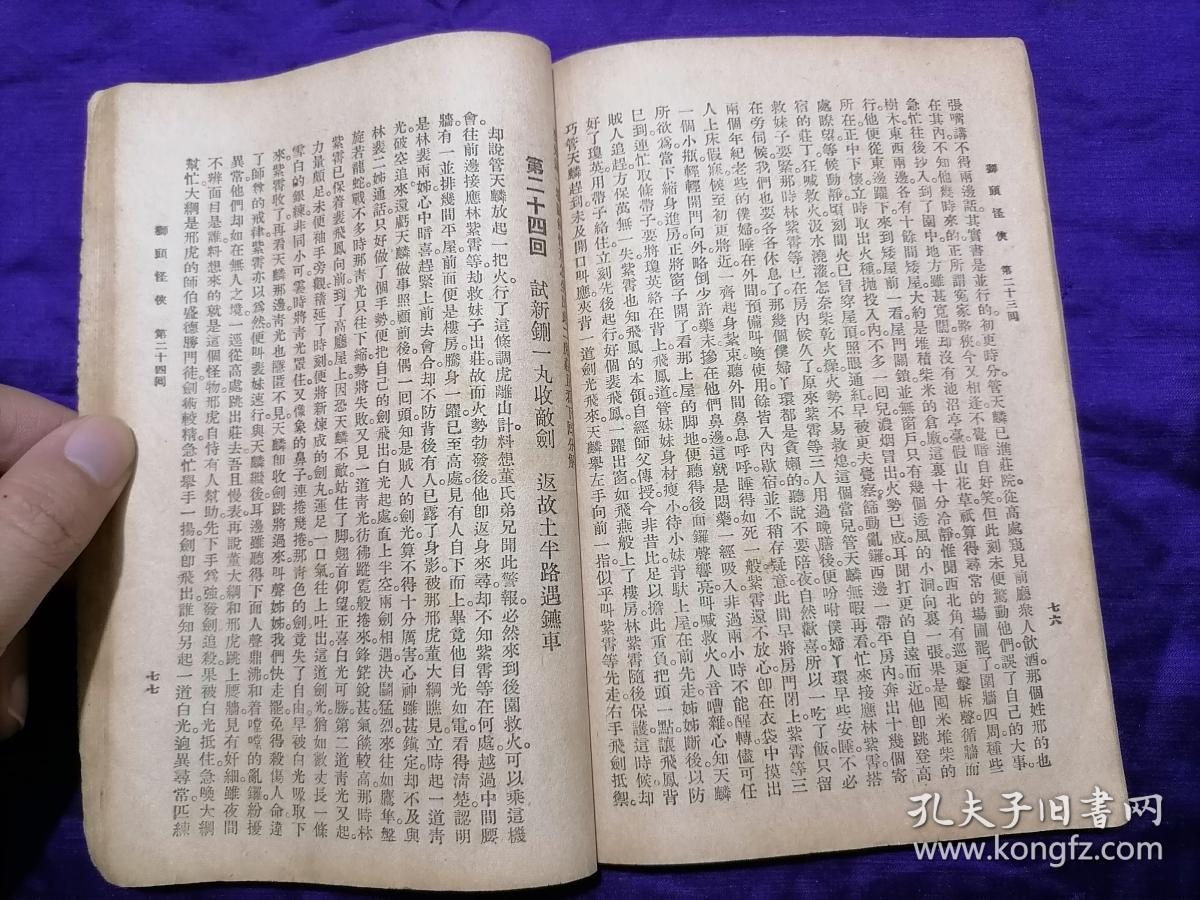 獅頭怪俠 第二十三回
七六
張嘴講不得兩邊話其實書是並行的初更時分管天麟已進莊院從高處窺見前廳衆人飲酒那個姓邢的也
在其內不知他幾時來的正所謂寃家路狹今又相逢不覺暗自好笑但此刻未便驚動他們誤了自己的大事
急忙往後抄入到了園中地方雖甚寬闊却沒有池沼亭臺假山花草祇算得尋常的場圃罷了圍牆四周種些
樹木東西兩邊各有十餘間矮屋大約是堆積柴米的倉廒這裏十分冷靜惟聞西北角有巡更擊柝聲循牆而
行他便從東邊躍下來到矮屋前一看屋門關鎖並無窗戶只有幾個透風的小洞向裏一張果是囤堆柴的
所在正中下懷立時取出火種拋投入內不多一回兒濃烟冒出火勢已成耳聞打更的自遠而近他卽跳登高
處瞭望等候動靜頃刻間火已冒穿屋頂照眼通紅早被更夫覺察篩動亂鑼西邊一帶平房內奔出十幾個寄
宿的莊丁狂喊救火汲水澆灌怎奈柴乾火燥火勢不易救熄這個當兒管天麟無暇再看忙來接應林紫霄搭
救妹子要緊那時林紫霄等已在房內候久了原來紫霄等三人用過晚膳後便吩咐僕婦丫環早些安睡不必
在旁伺候我們也要各各休息了那幾個僕婦丫環都是貪嬾的聽說不要陪夜自然歡喜所以一吃了飯只留
兩個年紀老些的僕婦睡在外間預備叫喚使用餘皆入內歇宿並不稍存疑意此間早將房門閉上紫霄等三
人上床假寐候至初更將近一齊起身紮束聽外間鼻息呼呼睡得如死一般紫霄還不放心卽在衣袋中摸出
一個小瓶輕輕開門向外略倒少許藥末摻在他們鼻邊這就是悶藥一經吸入非過兩小時不能醒轉儘可任
所欲爲當下縮身進房正將窗子開了看那上屋的脚地便聽得後面鑼聲響亮叫喊救火人音嘈雜心知天麟
已到連忙取條帶子要將瓊英絡在背上飛鳳道管妹妹身材瘦小待小妹背馱上屋在前先走姊姊斷後以防
賊人追趕方保萬無一失紫霄也知飛鳳的本領自經師父傳授今非昔比足以擔此重負把頭一點讓飛鳳背
好了瓊英用帶子絡住立刻先後起行好個裴飛鳳一躍出窗如飛燕般上了樓房林紫霄隨後保護這時候却
巧管天麟趕到未及開口叫應夾背一道劍光飛來天麟舉左手向前一指似乎叫紫霄等先走右手飛劍抵禦
第二十四回 試新鍘一丸收敵劍 返故土半路遇鑣車
却說管天麟放起一把火行了這條調虎離山計料想董氏弟兄聞此警報必然來到後園救火可以乘這機
會往前邊接應林紫霄等劫救妹子出莊故而火勢勃發後他卽返身來尋却不知紫霄等在何處越過中間腰
牆有一並排幾間平屋前面便是樓房騰身一躍已至高處見有人自下而上畢竟他目光如電看得清楚認明
是林裴兩姊心中暗喜趕緊上前去會合却不防背後有人已露了身影被那邢虎董大綱瞧見立時起一道靑
光破空追來還虧天麟做事照顧前後偶一回頭知是賊人的劍光算不得十分厲害心神雖甚鎭定却不及與
林裴二姊通話只好做了個手勢便把自己的劍飛出白光起處直上半空兩劍相遇決鬭猛烈來往如鷹隼盤
旋若龍蛇戰不多時那靑光只往下縮勢將失敗又見一道靑光彷彿蹤霓般捲來鋒鋩銳甚氣燄較高那時林
紫霄已保着裴飛鳳向前到了高廳屋上因恐天麟不敵站住了脚翹首仰望正喜白光可勝第二道靑光又起
力量頗足未便袖手旁觀稽延了時刻便將新煉成的劍丸運足一口氣往上吐出這道劍光猶如數丈長一條
雪白的銀練非同小可霎時將靑光罩住又像象的鼻子連捲幾捲那靑色的劍竟失了自由早被白光吸取下
來紫霄收了再看天麟那邊靑光也墮匿不見天麟卽收劍跳將過來叫聲姊姊我們快走罷免得殺傷人命違
了師尊的戒律紫霄亦以爲然便叫裴妹速行與天麟繼後耳邊雖聽得下面人聲鼎沸和着嘡嘡的亂鑼紛擾
異常他們却如在無人之境一逕從高處跳出莊去吾且慢表再說董大綱和邢虎跳上腰牆見有奸細雖夜間
不辨面目是誰料想來的就是這個怪物邢虎自恃有人幫助先下手爲強發劍追殺果被白光抵住急喚大綱
幫忙大綱是邢虎的師伯盛德勝門徒劍術較精急忙舉手一揚劍卽飛出誰知另起一道白光逈異尋常匹練
獅頭怪俠 第二十四回
七七
孔夫子旧書网
www.kongfz.com